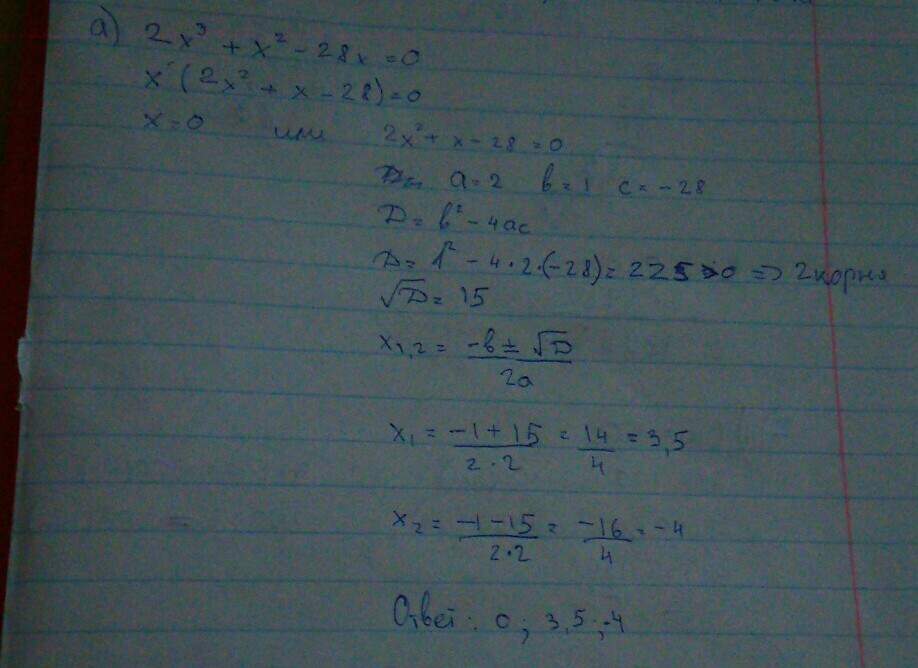 а) 2x³ + x² - 28x = 0
x (2x² + x - 28) = 0
x = 0 или 2x² + x - 28 = 0
a = 2 b = 1 c = -28
D = b² - 4ac
D = 1² - 4·2·(-28) = 225 > 0 => 2 корня
√D = 15
x₁,₂ = (-b ± √D)/2a
x₁ = (-1 + 15)/(2·2) = 14/4 = 3,5
x₂ = (-1 - 15)/(2·2) = -16/4 = -4
Ответ: 0; 3,5; -4